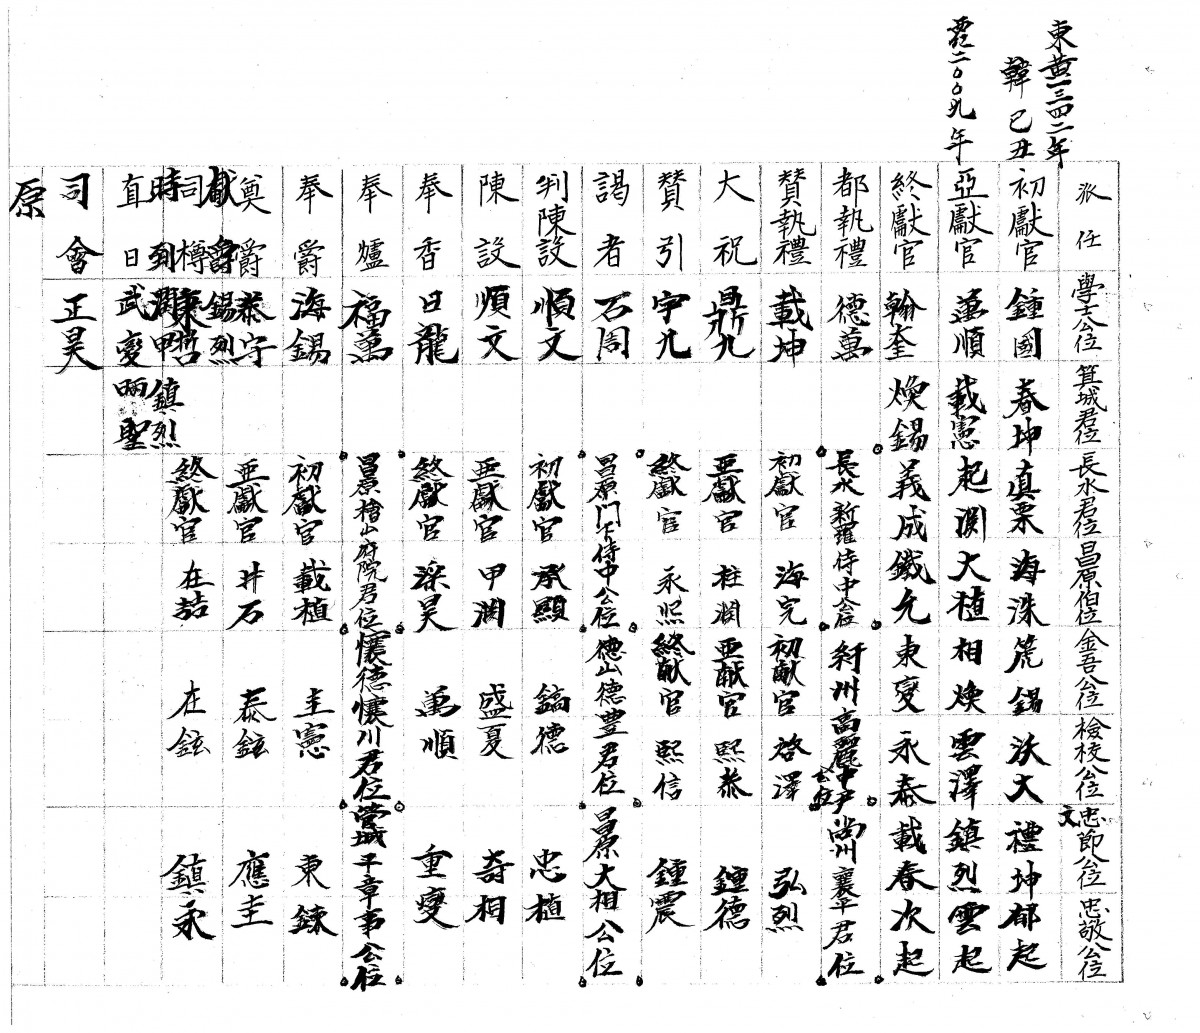 東黄一三四二年
韓 己丑
西紀二〇〇九年
派任 學士公位 箕城君位 長水君位 昌原伯位 金吾公位 檢校公位 文忠節公位 忠敬公位
初獻官 鍾國 春坤 真栗 海洙 箎錫 沃大 禮坤 郁起
亞獻官 萬順 載憲 起淵 大植 相煥 雲澤 鎮烈 雲起
終獻官 翰奎 煥錫 義成 鐵允 東燮 永泰 載春 次起
都執禮 德萬 長水新羅侍中公位 紆州高麗中尹公位 尚州襄平君位
贊執禮 載坤 初獻官 海完 初献官 啓澤 弘烈
大祝 鼎九 亞獻官 柱淵 亞献官 熙泰 鍾德
贊引 宇九 終獻官 永照 終献官 熙信 鍾震
謁者 石周 昌原門下侍中公位 德山德豊君位 昌原大相公位
判陳設 順文 初獻官 承顯 鎬德 忠植
陳設 順文 亞獻官 甲淵 盛夏 奇相
奉香 日龍 終獻官 深昊 萬順 重燮
奉爐 福萬 昌原檜山府院君位 懷德懷川君位 管城平章事公位
奉爵 海錫 初獻官 載植 圭憲 東錬
奠爵 泰守 亞獻官 井石 泰鉉 應圭
獻爵 錫烈
司樽 東哲 終獻官 在喆 在鉉 鎮永
時到 淵甲 鎮烈
直日 武燮 晒聖
司會 正昊
原